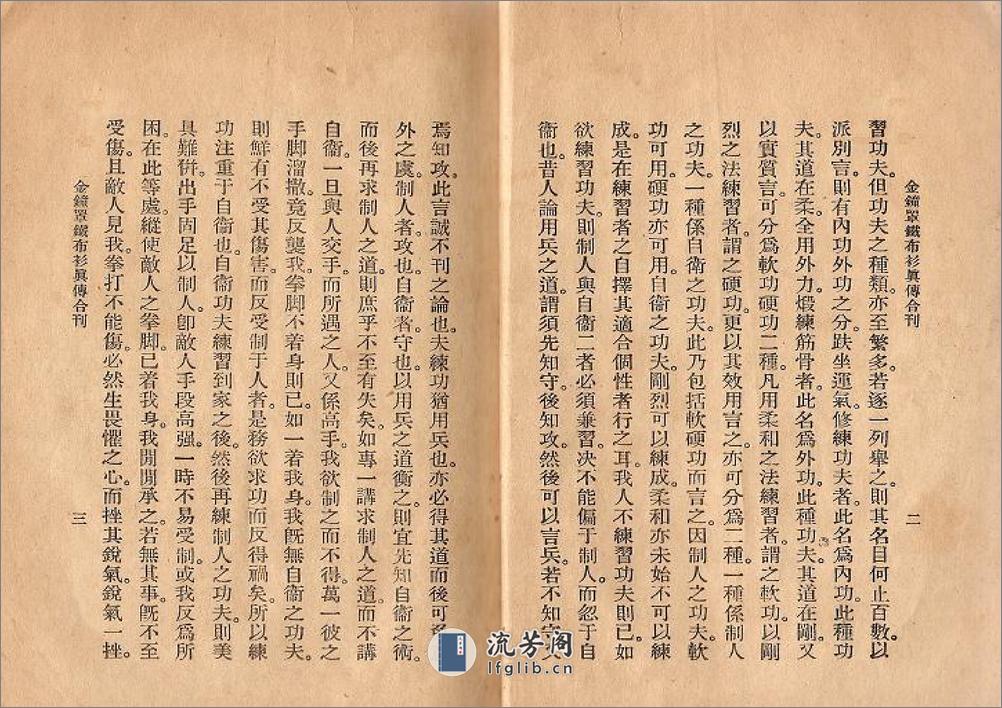 金鐘罩鐵布衫眞傳合刊 二
習功夫。但功夫之種類。亦至繁多。若逐一列舉之。則其名目何止百數。以
派別言。則有內功外功之分。趺坐運氣。修練功夫者。此名爲內功。此種功
夫。其道在柔。全用外力煅練筋骨者。此名爲外功。此種功夫。其道在剛。又
以實質言。可分爲軟功硬功二種。凡用柔和之法練習者。謂之軟功。以剛
烈之法練習者。謂之硬功。更以其效用言之。亦可分爲二種。一種係制人
之功夫。一種係自衛之功夫。此乃包括軟硬功而言之。因制人之功夫。軟
功可用。硬功亦可用。自衛之功夫。剛烈可以練成。柔和亦未始不可以練
成。是在練習者之自擇其適合個性者行之耳。我人不練習功夫則已。如
欲練習功夫。則制人與自衛二者必須兼習。决不能偏于制人。而忽于自
衛也。昔人論用兵之道。謂須先知守。後知攻。然後可以言兵。若不知守
焉知攻。此言誠不刊之論也。夫練功猶用兵也。亦必得其道而後可
外之虞。制人者攻也。自衛者。守也。以用兵之道衡之。則宜先知自衛之術。
而後再求制人之道。則庶乎不至有失矣。如專一講求制人之道。而不講
自衛。一旦與人交手。而所遇之人。又係高手。我欲制之而不得。萬一彼之
手脚溜撒。竟反襲我。拳脚不着身則已。如一着我身。我旣無自衛之功夫。
則鮮有不受其傷害。而反受制于人者。是務欲求功而反得禍矣。所以練
功注重于自衛也。自衛功夫練習到家之後。然後再練制人之功夫。則美
具難倂。出手固足以制人。卽敵人手段高强。一時不易受制。或我反爲所
困。在此等處。縱使敵人之拳脚。已着我身。我閒閒承之。若無其事。旣不至
受傷。且敵人見我。拳打不能傷。必然生畏懼之心。而挫其銳氣。銳氣一挫。
金鐘罩鐵布衫眞傳合刊 三
流芳阁
lfglib.cn